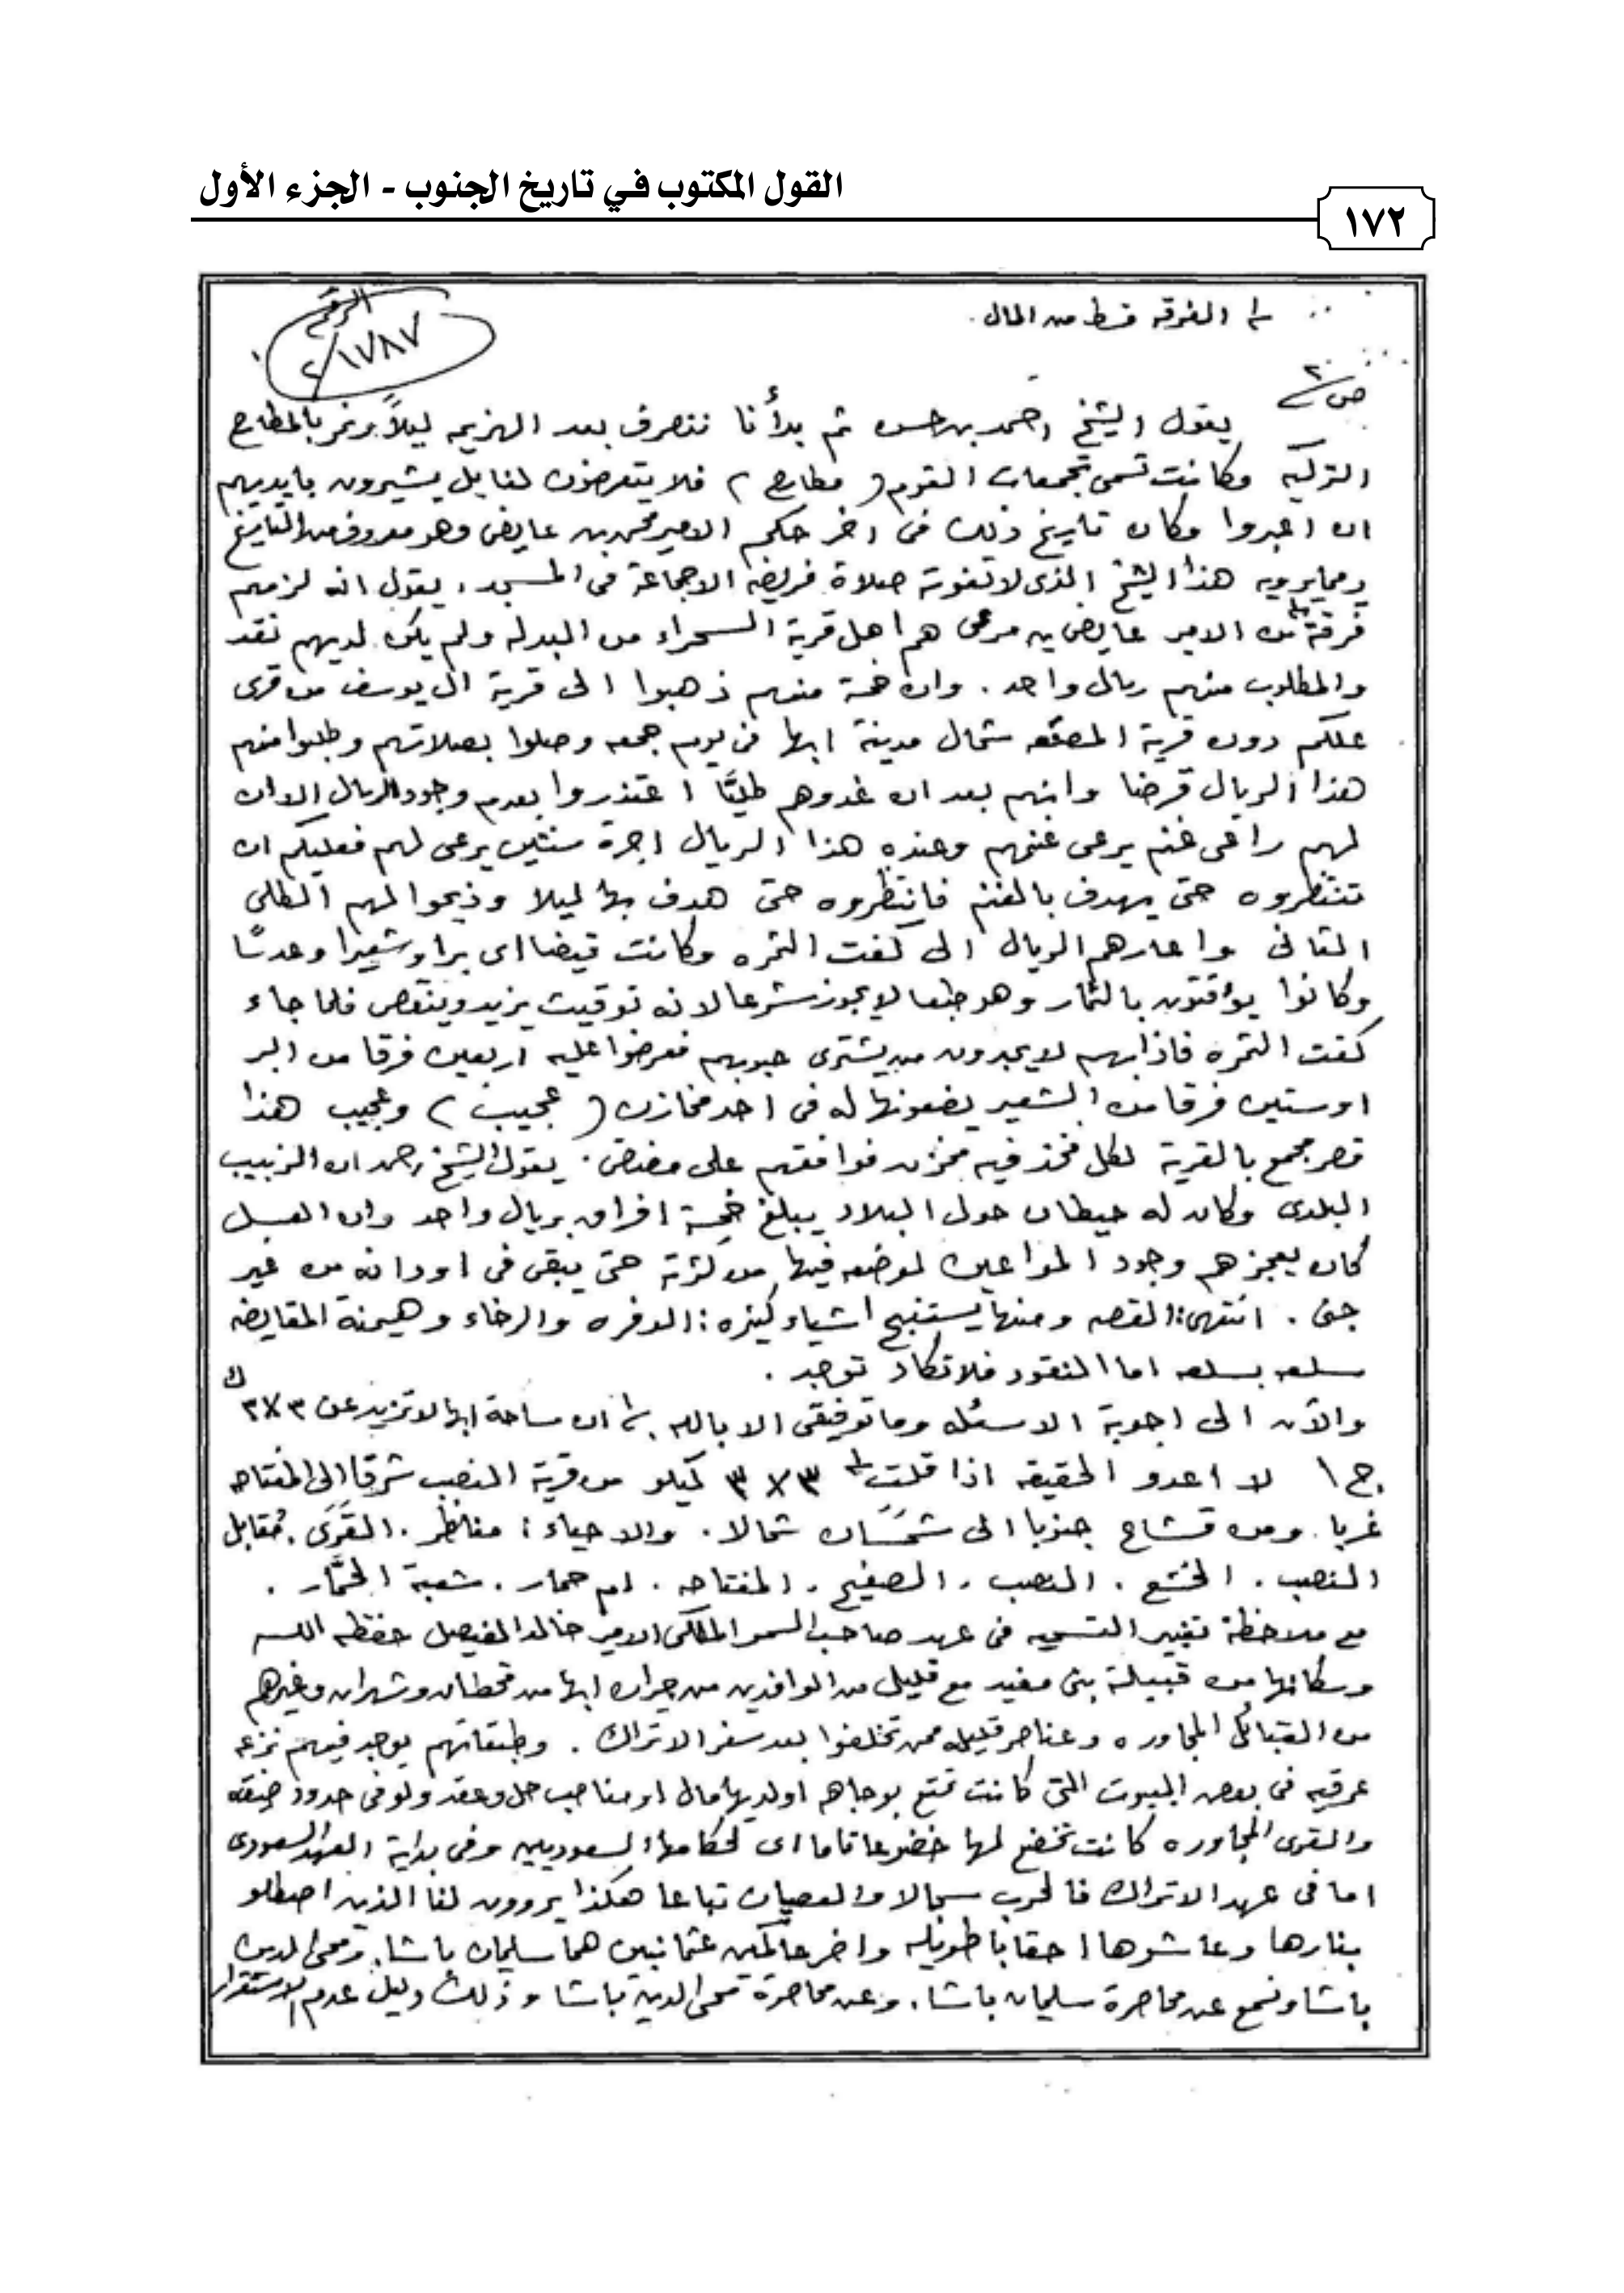 القول المكتوب في تاريخ الجنوب - الجزء الأول
١٧٢
الرقم
٢/١٧٨٧
١/ الفرقه قسط من المال.
ص/٢
يقول الشيخ احمد بن حسن ثم بدأنا ننصرف بعد الهزيمه ليلاً ونمر بالمطارح
التركيه وكانت تسمى تجمعات القوم ( مطارح ) فلا يتعرضون لنا بل يشيرون بايديهم
ان اعبروا وكان تاريخ ذلك فى اخر حكم الامير محمد بن عايض وهو معروف من التاريخ
ومما يرويه هذا الشيخ الذى لا تفوته صلاة فريضه الا جماعة فى المسجد، يقول انه لزمهم
فرقة من الامير عايض بن مرعى هم اهل قرية السحراء من البدله ولم يكن لديهم نقد
والمطلوب منهم ريال واحد . وان خمسة منهم ذهبوا الى قرية ال يوسف من قرى
علكم دون قرية المصنعه شمال مدينة ابها فى يوم جمعه وصلوا بصلاتهم وطلبوا منهم
هذا الريال قرضا وانهم بعد ان غدوهم طليًّا اعتذروا بعدم وجود الريال الا ان
لهم راعى غنم يرعى غنمهم وعنده هذا الريال اجرة سنتين يرعى لهم فعليكم ان
تنتظروه حتى يهدف بالغنم فانتظروه حتى هدف بها ليلا وذبحوا لهم الطلى
الثانى واعارهم الريال الى كفت الثمره وكانت قيضا اى برا وشعيرا وعدسًا
وكانوا يؤقتون بالثمار وهو طبعا لا يجوز شرعا لانه توقيت يزيد وينقص فلما جاء
كفت الثمره فاذا بهم لا يجدون من يشترى حبوبهم فعرضوا عليه اربعين فرقا من البر
اوستين فرقا من الشعير يضعونها له فى احد مخازن ( عجيب ) وعجيب هذا
قصر مجمع بالقرية لكل فخذ فيه مخزن فوافقهم على مضض . يقول الشيخ احمد ان الزبيب
البلدى وكان له حيطان حول البلاد يبلغ خمسة افراق بريال واحد وان العسل
كان يعجزهم وجود المواعين لوضعه فيها من كثرته حتى يبقى فى اودانه من غير
جنى . انتهى: القصه ومنها يستنبح اشياء كثيره : الوفره والرخاء وهيمنة المقايضه
سلعه بسلعه اما النقود فلا تكاد توجد .
والآن الى اجوبة الاسئله وما توفيقى الا بالله ١/ ان مساحة ابها لا تزيد عن ٣×٣ ك
ج ١ لا اعدو الحقيقه اذا قلت ٣×٣ كيلو من قرية النصب شرقا الى المفتاحه
غربا . ومن قشاع جنوبا الى شمسان شمالا . والاحياء : مناظر . القَرَى . مُقابل
النصب . الخشع . النصب . الصفيح . المفتاحه . ام حمار . شعبة الحمَّار .
مع ملاحظة تغيير التسميه فى عهد صاحب السمو الملكى الامير خالد الفيصل حفظه الله
وسكانها من قبيلة بنى مغيد مع قليل من الوافدين من جيران ابها من قحطان وشهران وغيرهم
من القبائل المجاوره وعناصر قليله ممن تخلفوا بعد سفر الاتراك . وطبقاتهم يوجد فيهم نزعه
عرقيه فى بعض البيوت التى كانت تمتع بوجاهه اولديها مال او مناصب حل وعقد ولو فى حدود ضيقه
والقرى المجاوره كانت تخضع لها خضوعا تاما اى لحكامها السعوديين وفى بداية العهد السعودى
اما فى عهد الاتراك فالحرب سجالا والعصيان تباعا هكذا يروون لنا الذين اصطلو
بنارها وعاشوها احقابا طويله واخر حاكمين عثمانيين هما سليمان باشا. ومحى الدين
باشا ونسمع عن محاصرة سليمان باشا. وعن محاصرة محى الدين باشا وذلك دليل عدم الاستقرار